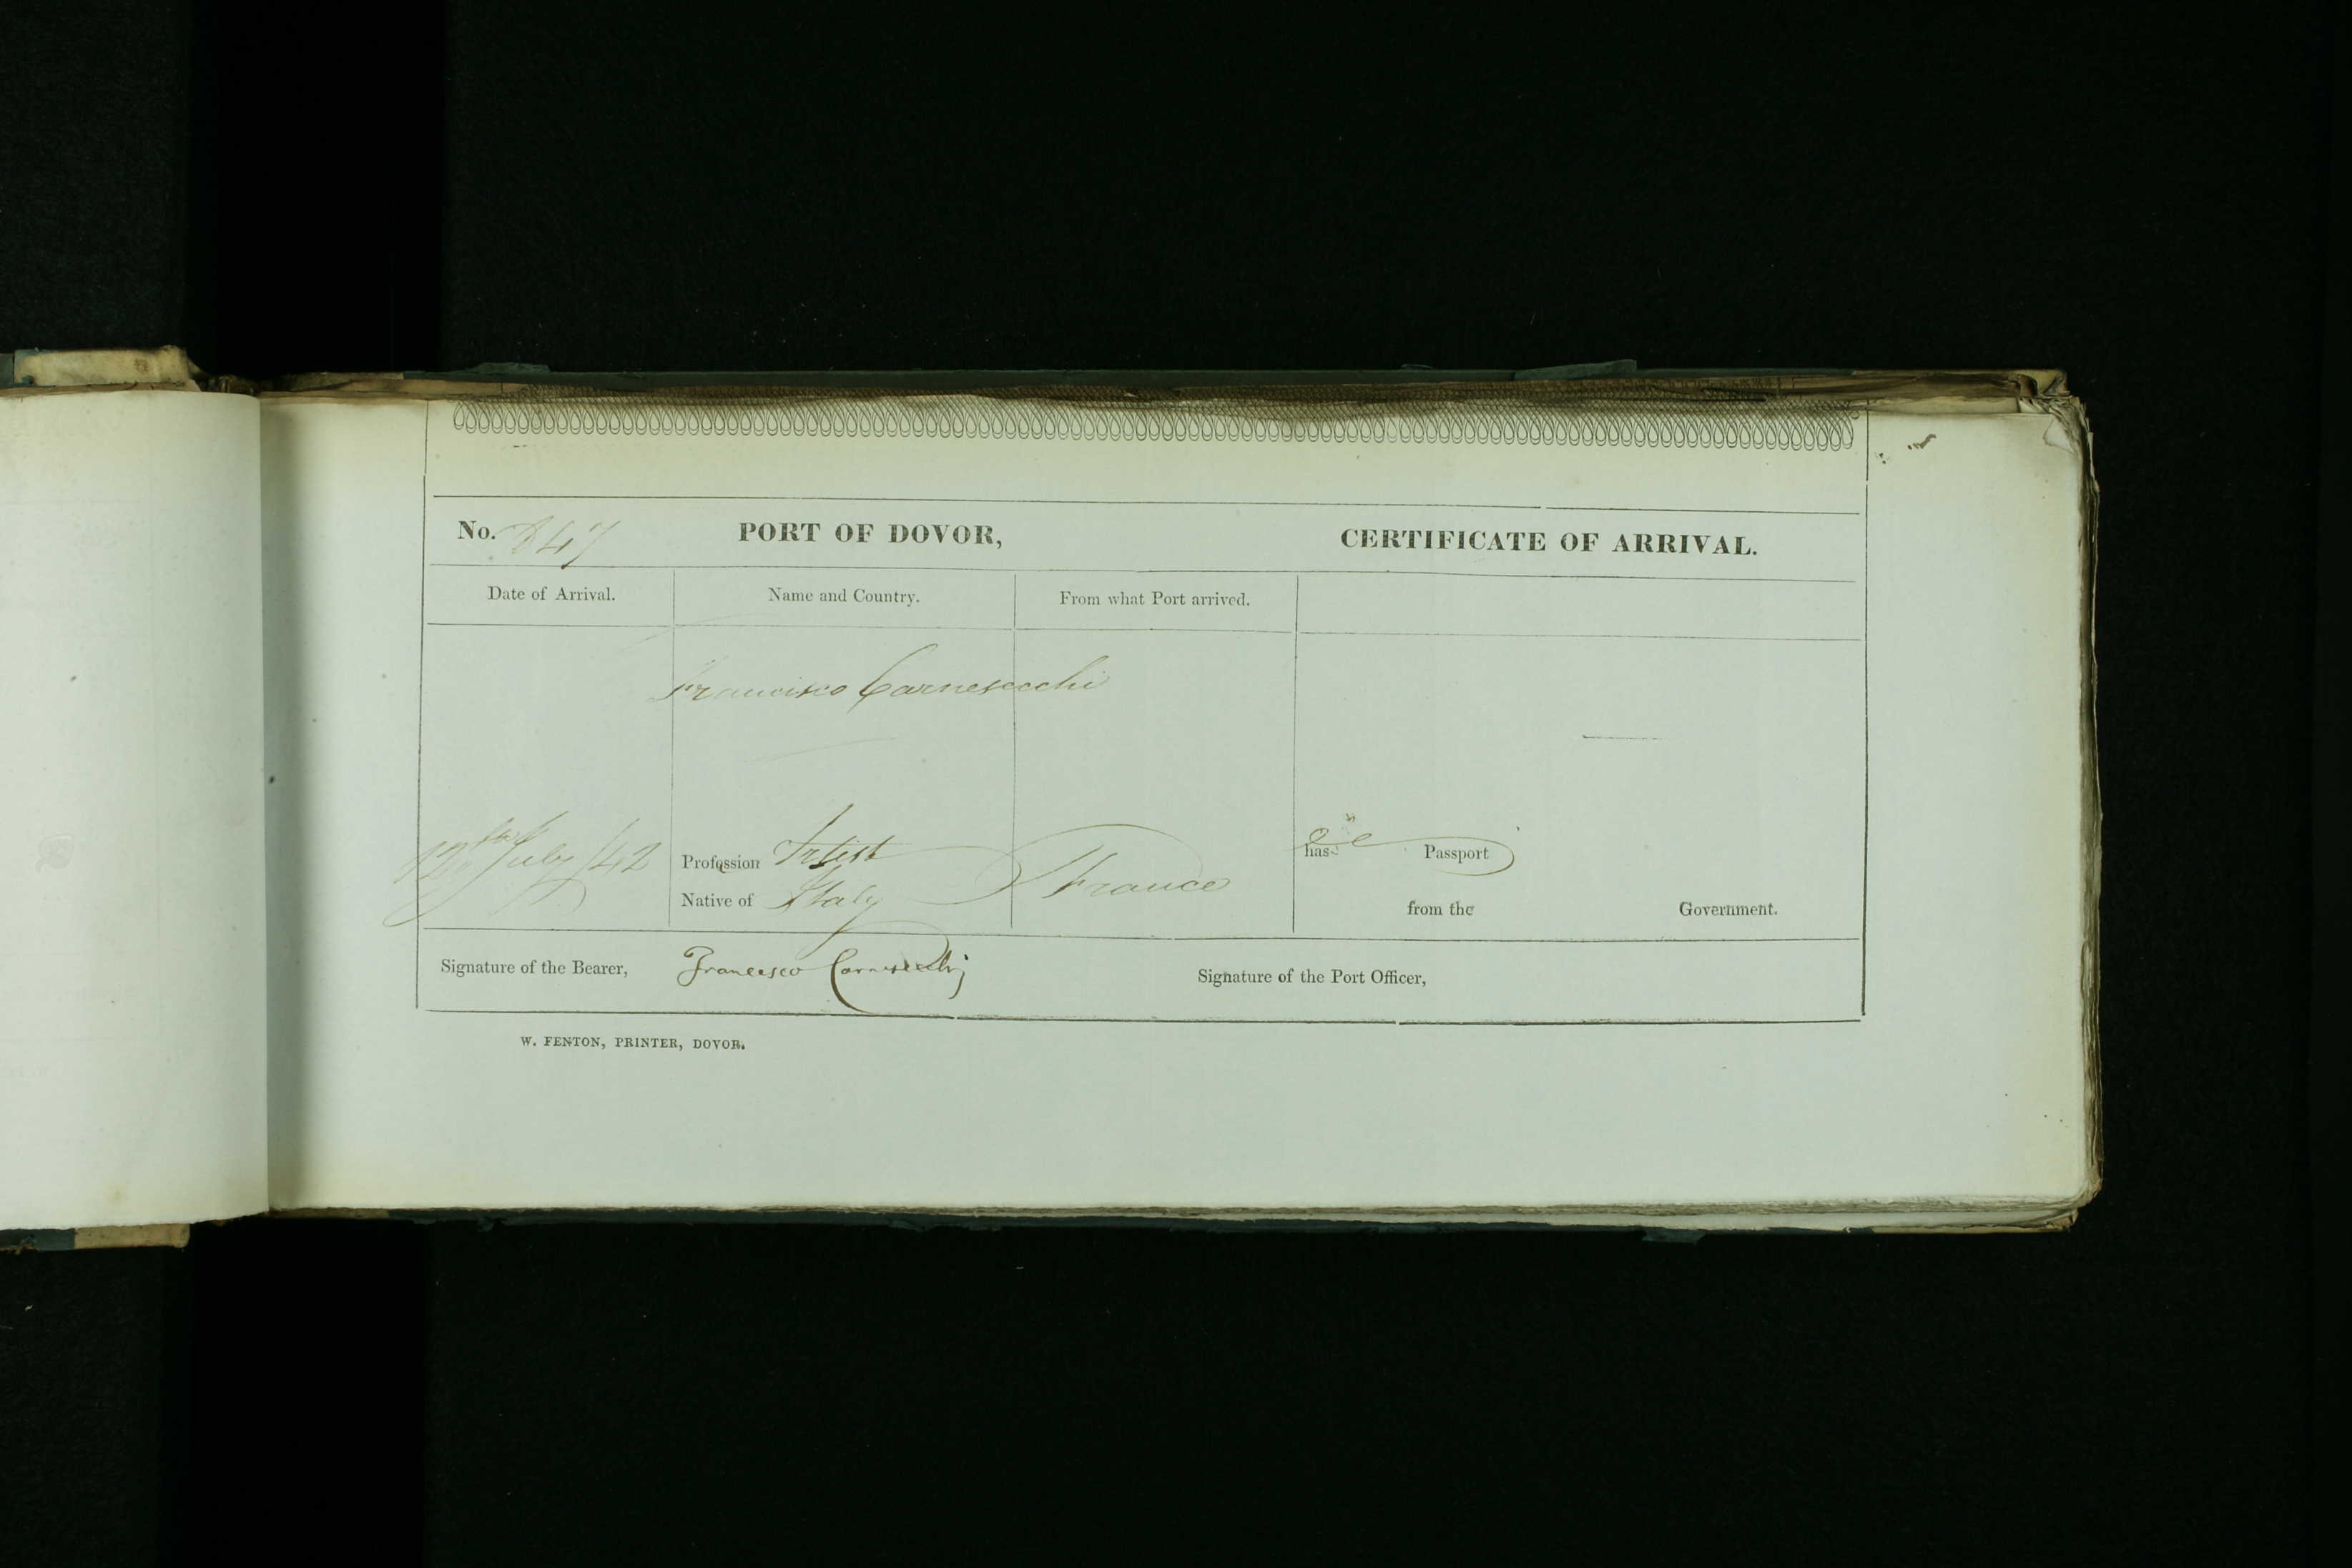 No. 847 PORT OF DOVOR, CERTIFICATE OF ARRIVAL.
Date of Arrival. Name and Country. From what Port arrived.
Francisco Carnesecchi
12 July /42 Profession Artist France has Passport
Native of Italy from the Government.
Signature of the Bearer, Francesco Carnesecchi Signature of the Port Officer,
W. FENTON, PRINTER, DOVOR.